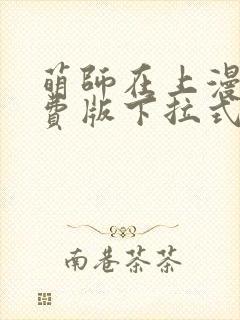 萌師在上漫
費版下拉式
南巷茶茶